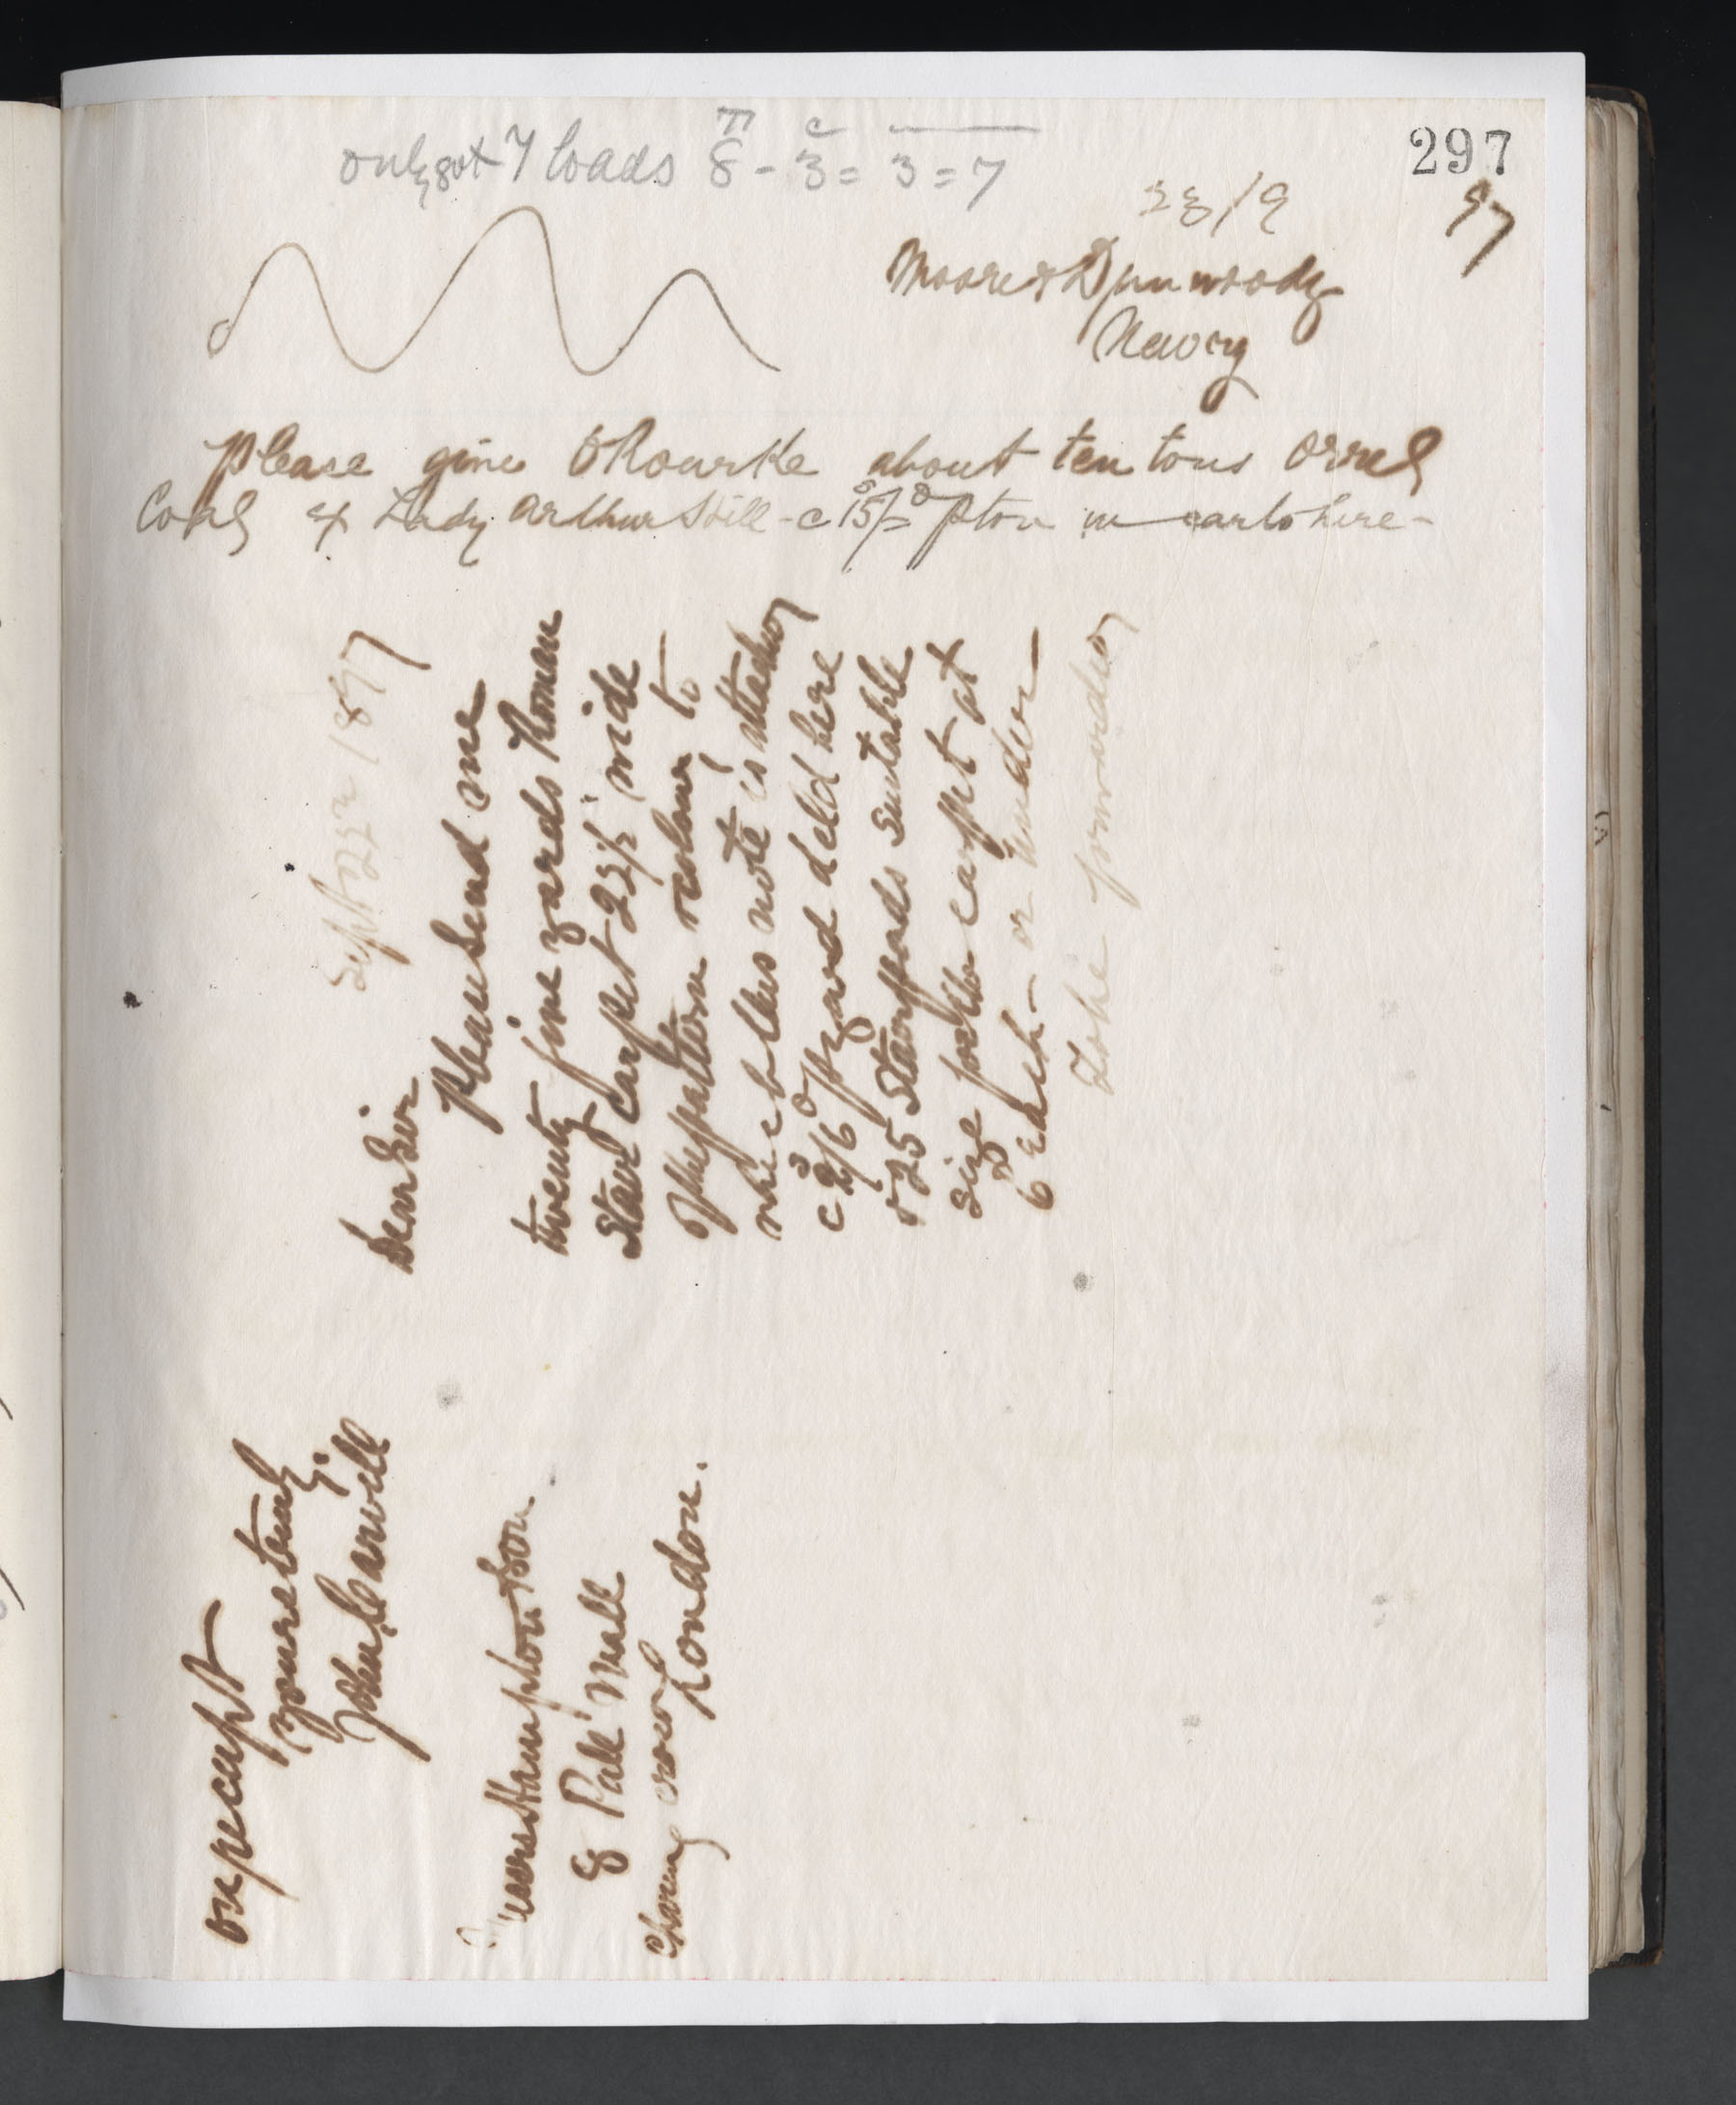 297
only got 7 loads 8 - 3 = 3 = 7
T c
23/9 97
Moore & Dunwoody
Newry
Please give O'Rourke about ten tons Orrel
Coal ex Lady Arthur Hill - @ 15/= p ton in carts here -
Sept 23rd 1897
Dear Sir
Please send me
twenty five yards Roman
Stair Carpet 22½ wide
of the pattern colour to
which this note is attached
@ 2/6 p yard deld here
& 25 Stair pads suitable
size for the carpet at
6d each - or under -
to be forwarded
except
yours truly
John Carvill
Messrs Hampton & Son.
8 Pall Mall
Charing Cross London.